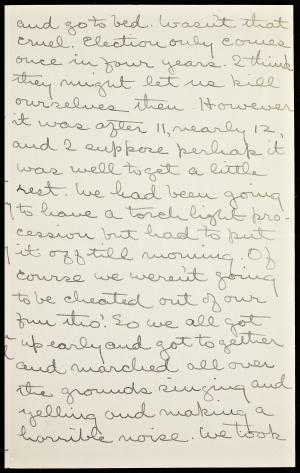 and go to bed. Wasn't that
cruel. Election only comes
once in four years. I think
they might let us kill
ourselves then. However
it was after 11, nearly 12,
and I suppose perhaps it
was well to get a little
rest. We had been going
to have a torchlight pro-
cession but had to put
it off till morning. Of
course we weren't going
to be cheated out of our
fun tho'. So we all got
up early and got together
and marched all over
the grounds singing and
yelling and making a
horrible noise. We took